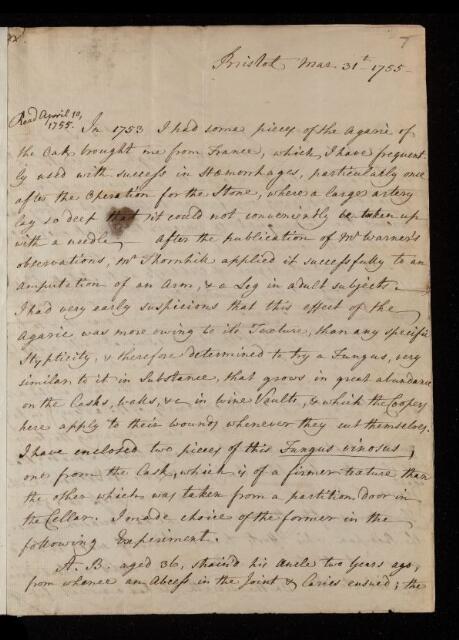 7
Bristol Mar. 31st 1755
Read April 10,
1755.
In 1753 I had some pieces of the Agaric of
the Oak brought me from France, which I have frequent-
ly used with success in Hæmorrhages, particularly once
after the Operation for the Stone, where a large artery
lay so deep that it could not conveniently be taken up
with a needle. After the publication of Mr Warner's
observations, Mr Thornhill applied it successfully to an
amputation of an Arm, & a Leg in adult subjects.
I had very early suspicions that this effect of the
Agaric was more owing to its Texture, than any specific
Stypticity, & therefore determined to try a Fungus, very
similar to it in Substance, that grows in great abundance
on the Casks, walls, &c in wine Vaults, & which the Coopers
here apply to their wounds whenever they cut themselves.
I have enclosed two pieces of this Fungus vinosus,
one from the Cask, which is of a firmer texture than
the other which was taken from a partition door in
the Cellar. I made choice of the former in the
following Experiment.
A. B. aged 36, strain'd his Ancle two Years ago,
from whence an Abcess in the Joint & Caries ensued; the